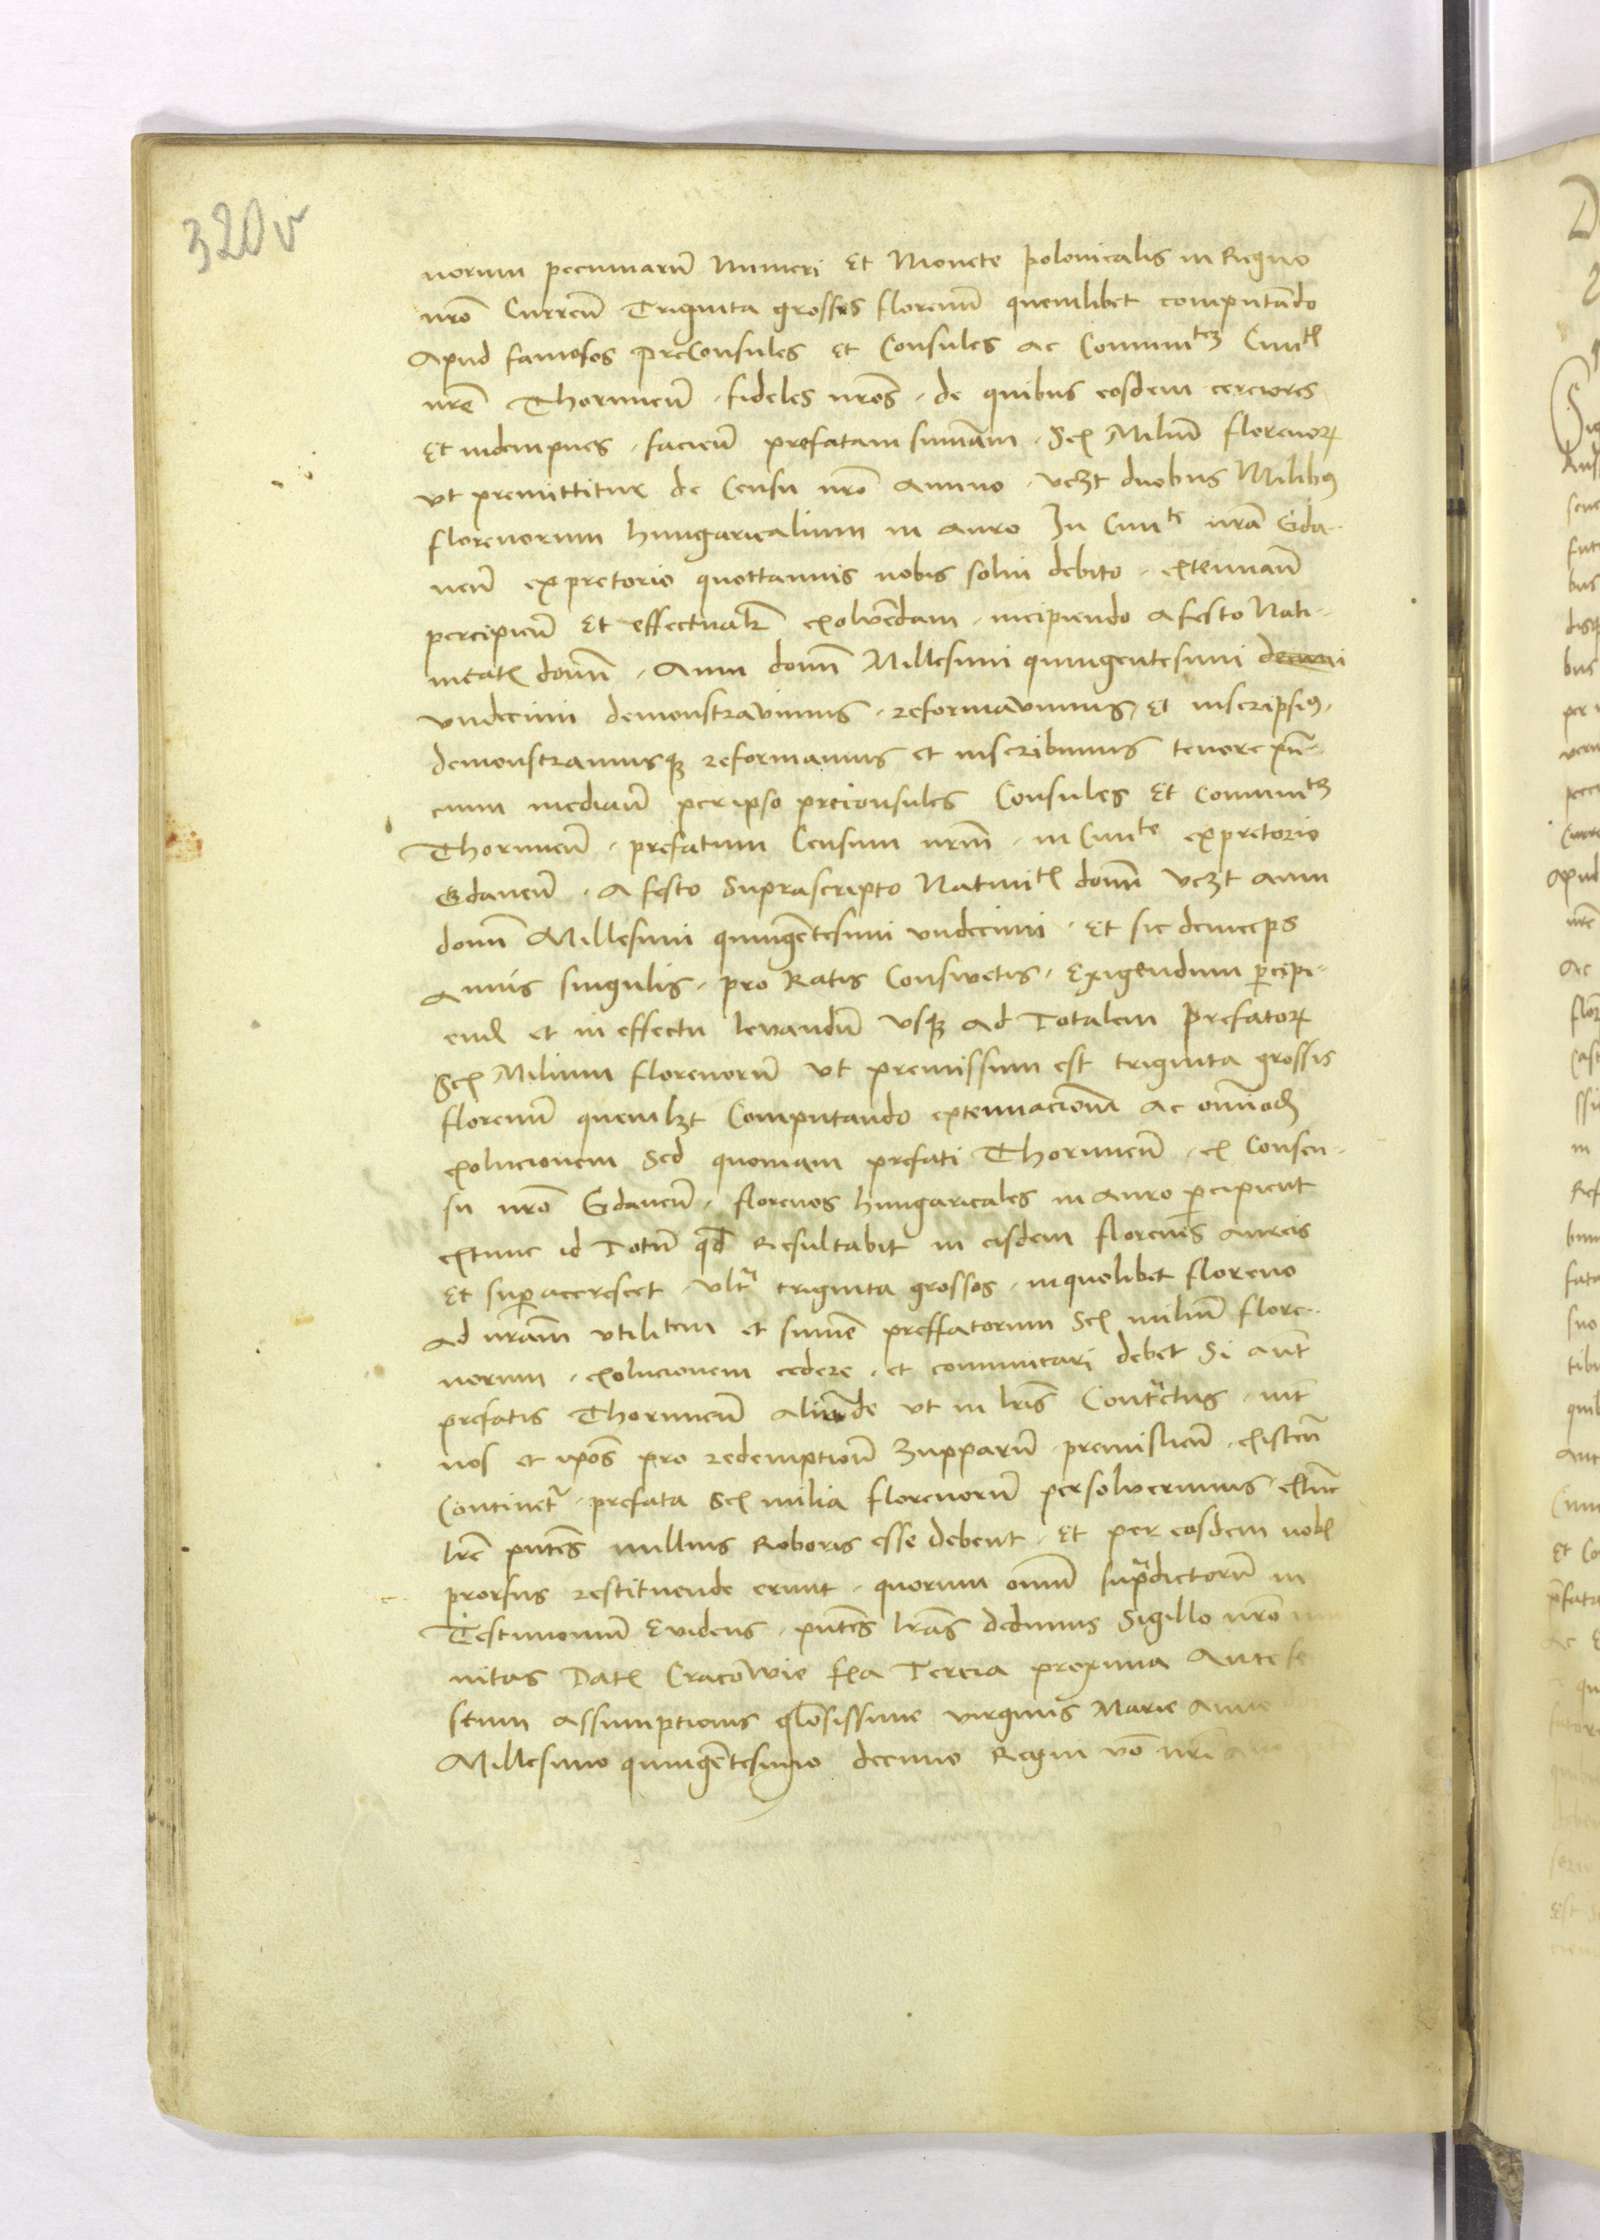 320v
norum pecuniarũ Numeri Et Monete polonicalis in Regno
nrõ Curreñ Triginta grossos florenũ quemlibet computãdo
Apud famosos preConsules et Consules ac Comunitẽ Ciuitẽ
nrẽ Thoruneñ fideles nrõs de quibus eosdem cerciores
Et indempnes facieñ prefatam sum̃am Sex Miliũ florenorꝝ
vt premittitur de Censu nrõ Annuo vczt duobus Milibꝰ
florenorum hungaricalium in Auro In Ciuitẽ nrã Gda-
neñ ex pretorio quottannis nobis solui debito extenuañ
percipieñ Et effectualr̃ exoluẽdam incipiendo a festo Nati-
uitatꝭ dom̃ Anni dom̃ Millesimi quingentesimi decimi
vndecimi demonstrauimus reformauimus et inscripsimꝰ
demonstramusqꝫ reformamus et inscribimus tenore pñ-
cium mediañ per ipsos preconsules Consules Et Comunitẽ
Thoruneñ prefatum Censum nrm̃ in Ciuite ex pretorio
Gdaneñ A festo Suprascripto Natiuitꝭ dom̃ vczt anni
dom̃ Millesimi quingẽtesimi vndecimi Et sic deinceps
Annis singulis pro Ratis Conswetis Exigendum p̲cipi-
endꝭ et in effectu leuandũ vsqꝫ Ad Totalem prefatorꝝ
Sex Milium florenorũ vt premissum est triginta grossis
florenũ quemlzt Computando extenuacionẽ ac omĩodꝭ
exolucionem Sed quoniam prefati Thoruneñ ex Consen-
su nrõ Gdaneñ florenos hungaricales in Auro p̲cipient
extunc id Totũ qd̃ Resultabit in eisdem florenis Aureis
Et sup̲accrescet vltã triginta grossos in quolibet floreno
Ad nrãm vtilitem et sum̃e preffatorum Sex miliũ flore-
norum exolucionem cedere et comunicari debet Si aũt
prefatis Thoruneñ aliunde vt in lrĩs Contractus int̃
nos et ipõs pro redemptionẽ Zupparũ premislieñ existeñ
Continetr̃ prefata Sex milia florenorũ persoluerimus extũc
lrẽ pñtes nullius Roboris esse debent Et per eosdem nobꝭ
prorsus restituende erunt quorum om̃iũ supradictorũ in
Testimoniũ Euidens pñtes lrãs dedimus Sigillo nrõ
nitas Datꝭ Cracowie fẽa Tercia proxima Ante fe
stum Assumptionis glõsissime virginis Marie Anno
Millesimo quingẽtesimo decimo Regni vo nrĩ